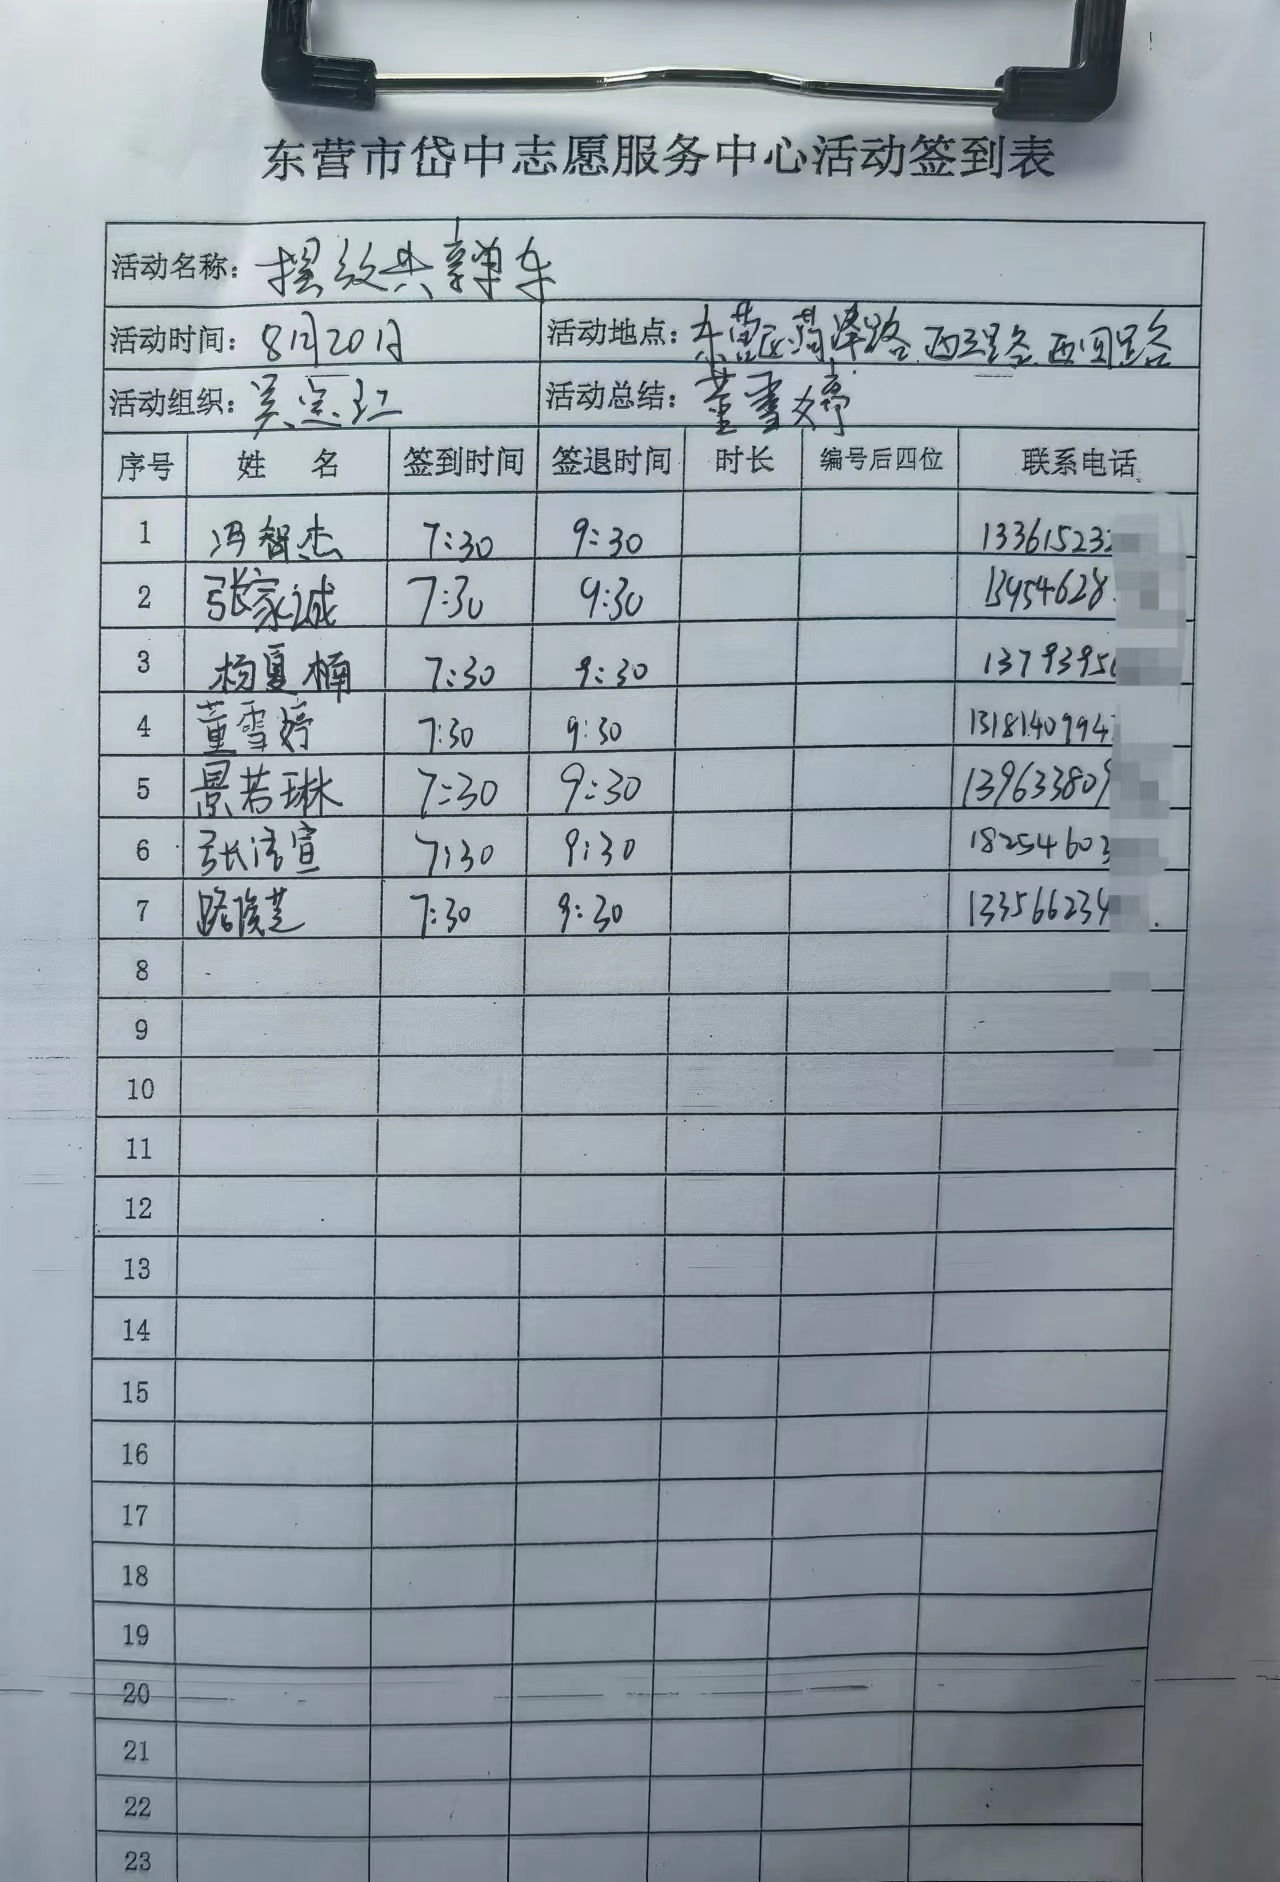 东营市岱中志愿服务中心活动签到表
活动名称: 摆放共享单车
活动时间: 8月20日 活动地点: 东营区菏泽路 西三里路 西四路
活动组织: 吴宝红 活动总结: 董雪婷
序号 姓 名 签到时间 签退时间 时长 编号后四位 联系电话
1 冯智杰 7:30 9:30 133615232
2 张家诚 7:30 9:30 13954628
3 杨夏楠 7:30 9:30 1379395
4 董雪婷 7:30 9:30 1318140994
5 景若琳 7:30 9:30 139633809
6 张洧宣 7:30 9:30 18254603
7 路俊芝 7:30 9:30 133566234
8
9
10
11
12
13
14
15
16
17
18
19
20
21
22
23